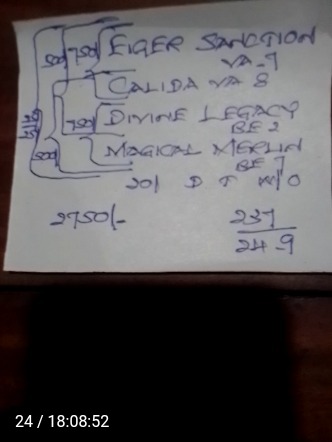 EIGER SANCTION
VA-7
CALIDA VA 8
DIVINE LEGACY
BE 2
MAGICAL MERLIN
BE 7
20/ D T W/O
2750/-
237
24 9
500
750
750
500
24 / 18:08:52